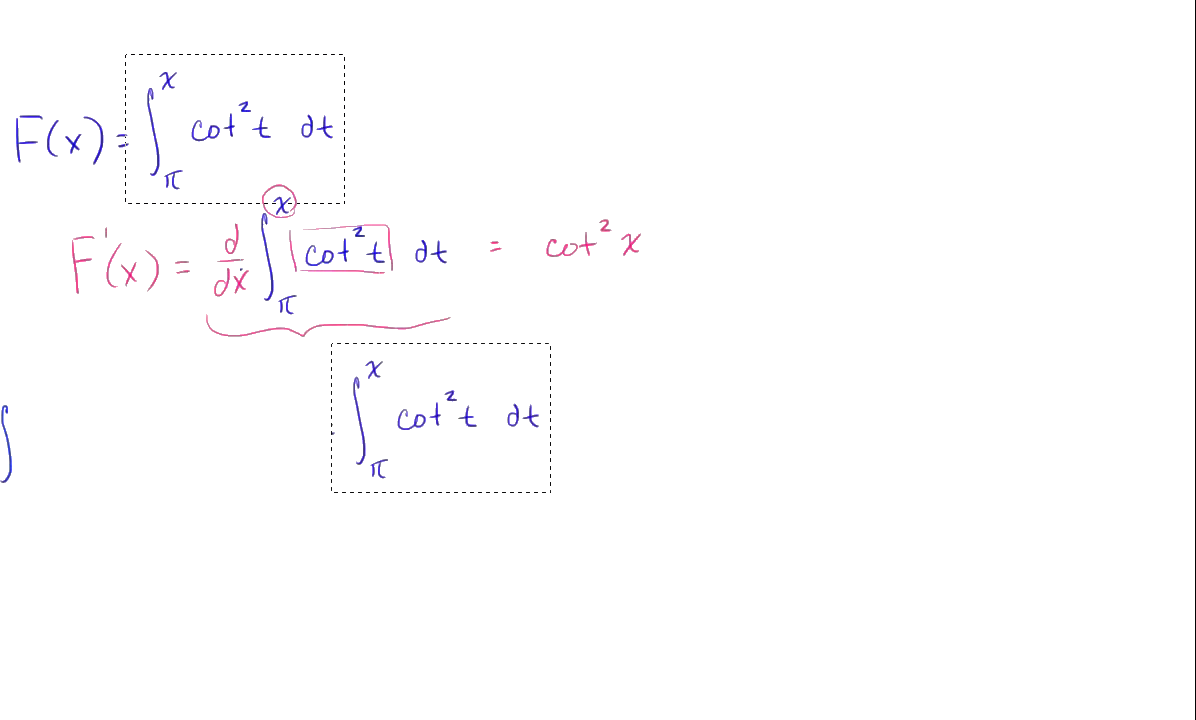 F(x) = ∫_π^x cot²t dt
F'(x) = d/dx ∫_π^x cot²t dt = cot²x
∫ ∫_π^x cot²t dt